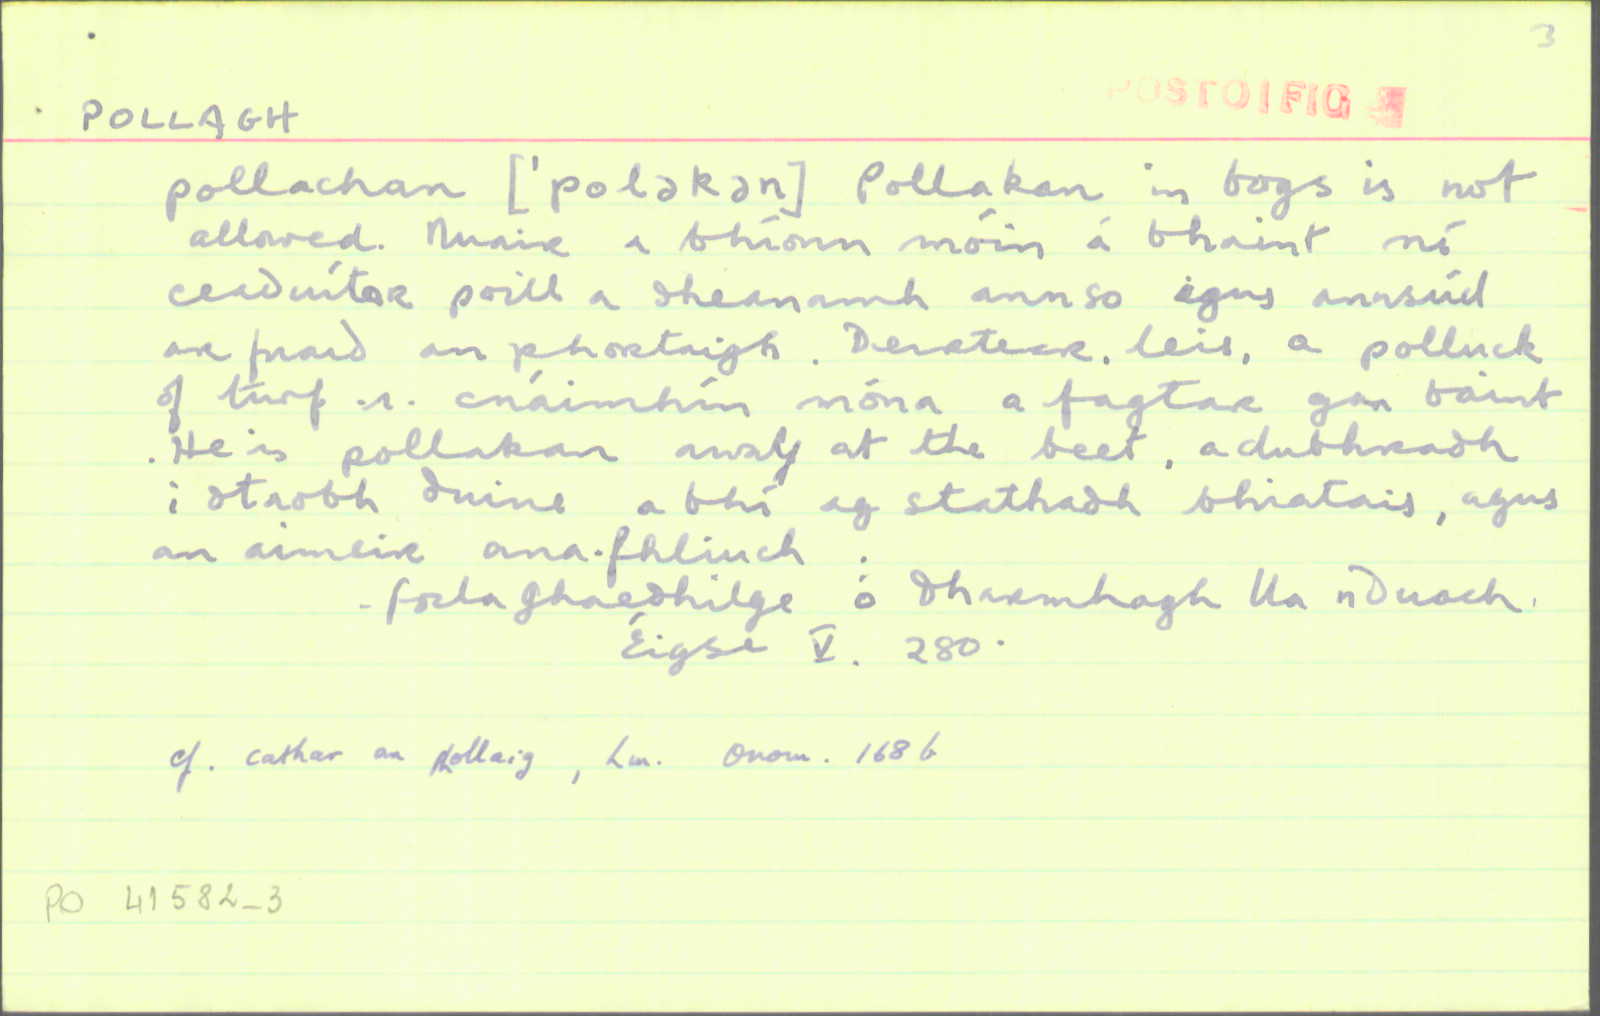 3
POSTOIFIG
POLLAGH
pollachan ['poləkən] Pollakan in bogs is not
allowed. Nuair a bhíonn móin á bhaint ní
ceaduítar poill a dheanamh annso agus annsúd
ar fuaid an phortaigh. Deirtear, leis, a polluck
of turf .i. cnáimhín móna a fagtar gan baint
. He is pollakan away at the beet, adubhradh
i dtaobh duine a bhí ag stathadh bhiatais, agus
an aimsir ana-fhliuch.
- Focla Ghaedhilge ó Dharmhagh Ua nDuach.
Éigse V. 280.
cf. cathar an phollaig, Lm. Onom. 168 b
PO 41582_3